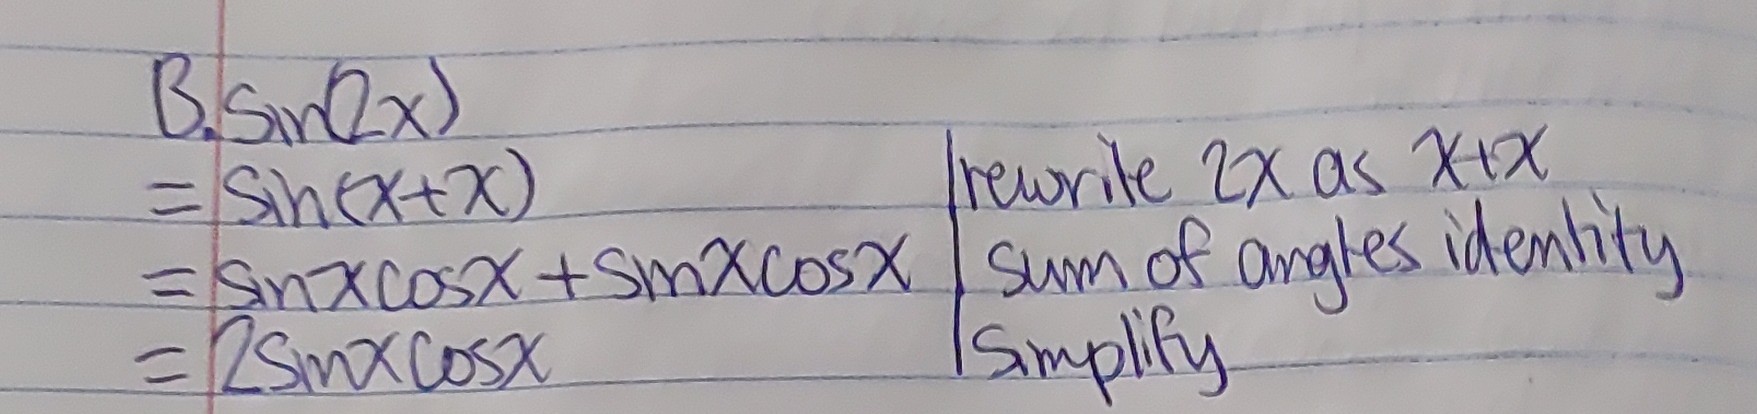 B. sin(2x)
= sin(x+x) | rewrite 2x as x+x
= sinxcosx + sinxcosx | sum of angles identity
= 2sinxcosx | simplify